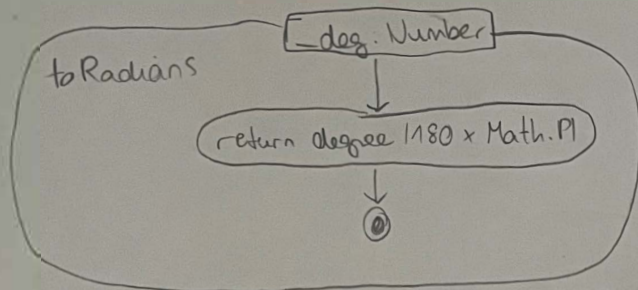 _deg: Number
toRadians
return degree /180 x Math.PI